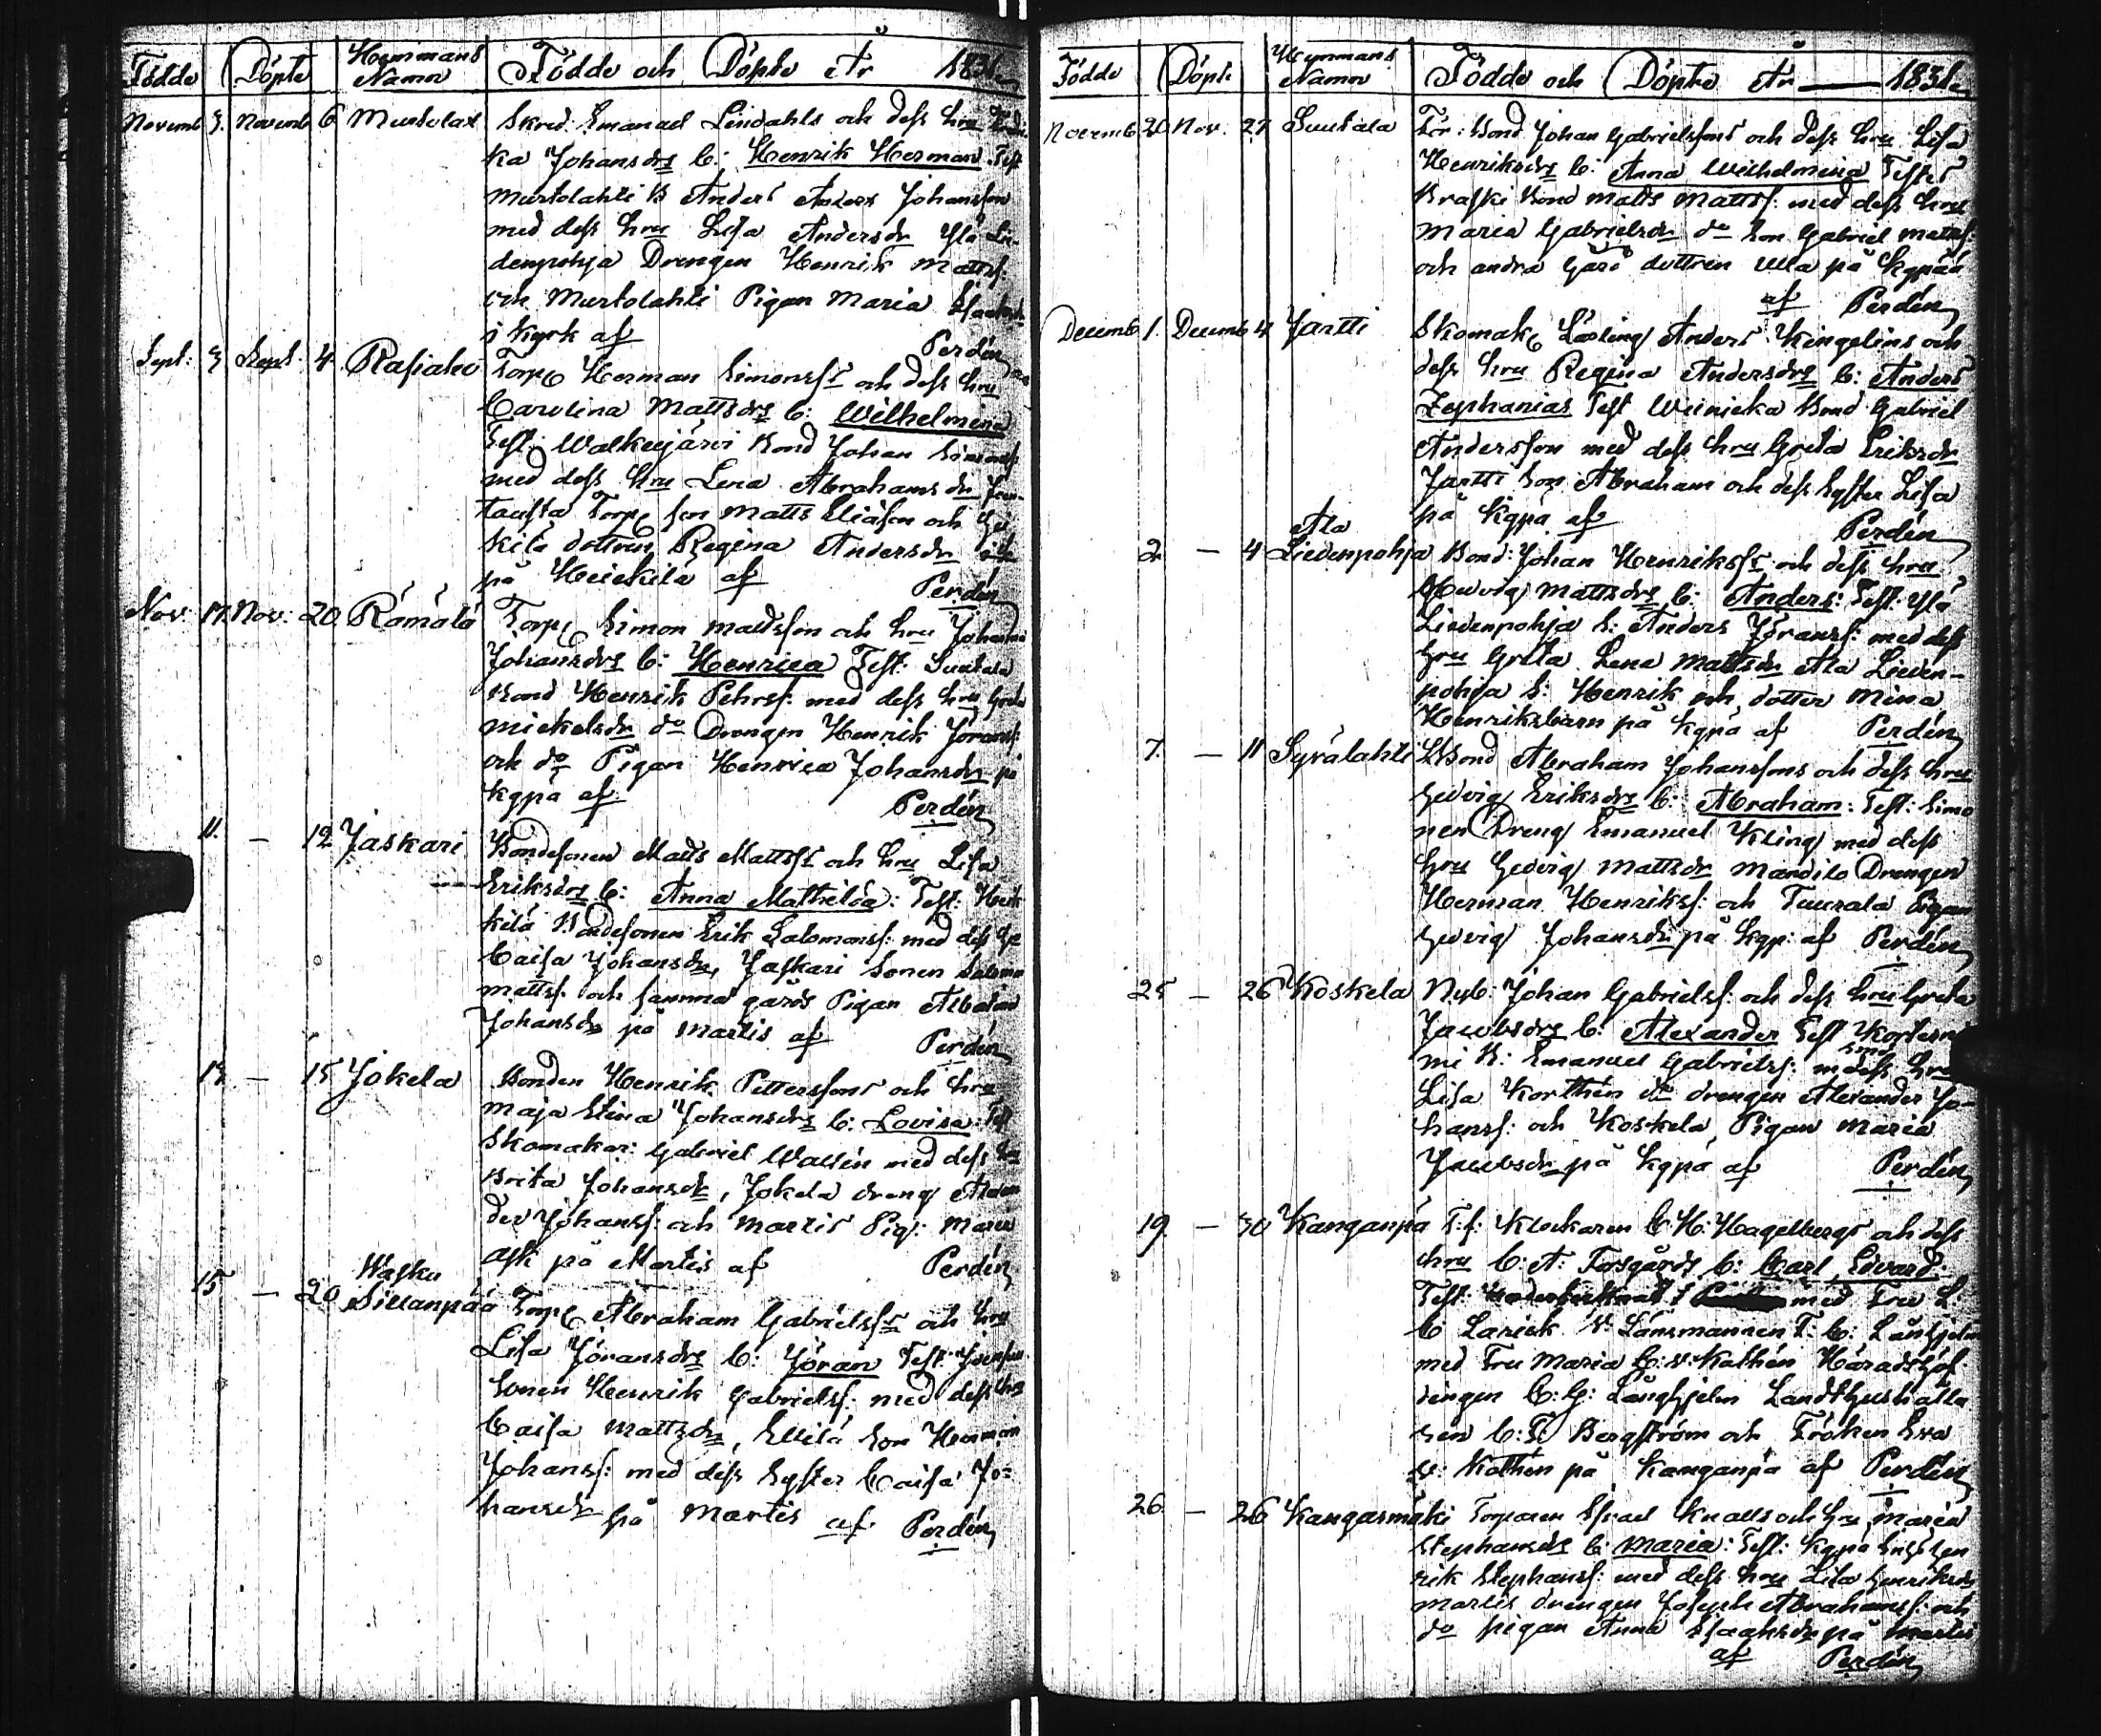 Födde Döpte Hemmans Namn Födde och Döpte År 1831
Novemb 3. Novemb 6 Murtolax Skred: Emanuel Lindahls och dess hru
ka Johansdrs b: Henrik Herman Test
Murtolahti B Anders Anders Johansson
med dess hru Lisa Andersdr Ylä Lie-
denpohja Drengen Henrik Mattss:
och Murtolahti Pigan Maria
i Kyrk af Perdén
Sept: 3 Sept. 4 Rasiaho Torp Herman Simonss och dess hru
Carolina Mattsdrs b: Wilhelmina
Test: Walkejärvi Bond Johan Simonss
med dess hru Lena Abrahamsdr
tausta Torp son Matts Eliasson och
kilä dottren Regina Andersdr
på Heickilä af Perdén
Nov. 17. Nov: 20 Römälä Torp Simon Mattsson och hru Johanna
Johansdrs b: Henrica Test: Suutala
Bond Henrik Pehrss: med dess hru Greta
Mickelsdr do Drengen Henrik Göranss:
och do Pigan Henrica Johansdr på
kgpa af Perdén
11. — 12 Jaskari Bondesonen Matts Mattss och hru Lisa
Eriksdrs b: Anna Mathilda: Test: Heic
kilä Bondesonen Erik Salomonss: med dess
Caisa Johansdr, Jaskari Sonen Salomon
Mattss: och samma gårds Pigan
Johansdr på Martis af Perdén
13 — 15 Jokela Bonden Henrik Petterssons och hru
Maja Stina Johansdrs b: Lovisa: Test
Skomakar: Gabriel Wallén med dess hru
Brita Johansdr, Jokela dreng Alexan
der Johanss: och Martis Pig: Maria
på Martis af Perdén
Wasku
15 — 20 Sillanpää Torp Abraham Gabrielss och hru
Lisa Jöransdrs b: Jöran Test:
Sonen Henrik Gabrielss: med dess hru
Caisa Mattsdr, Ellilä Son Herman
Johanss: med dess Syster Caisa Jo=
hansdr på Martis af Perdén
Födde Döpte Hemmans Namn Födde och Döpte År — 1831
Novemb 20 Nov. 27 Suutala För: Bond Johan Gabrielssons och dess hru Lisa
Henriksdrs b: Anna Wilhelmina Testes
Kraski Bond Matts Mattss: med dess hru
Maria Gabrielsdr do Son Gabriel Mattss:
och andra Gårds dottren Ulla på Kgpaa
af Perdén
Decemb 1. Decemb 4 Jartti Skomak Lärling Anders Kingelins och
dess hru Regina Andersdrs b: Anders
Zephanias Test Weinicka Bond Gabriel
Andersson med dess hru Greta Eriksdr
Jartti Son Abraham och dess Syster Lisa
på Kgpa af Perdén
Ala
2. — 4 Liedenpohja Bond: Johan Henrikss och dess hru
Hedvig Mattsdrs b: Anders: Test: Ylä
Liedenpohja B: Anders Jöranss: med dess
hru Greta Lena Mattsdr Ala Lieden-
pohja S: Henrik och dotter Mina
Henriksbarn på kgpa af Perdén
7. — 11 Syrälahti Bond Abraham Johanssons och dess hru
Hedvig Eriksdrs b: Abraham: Test: Simo
nen Dreng Emanuel Kling med dess
hru Hedvig Mattsdr Mandila Drengen
Herman Henrikss: och Tuurala Pigan
Hedvig Johansdr på kgp: af Perdén
25 — 26 Koskela Nyb: Johan Gabrielss: och dess hru Greta
Jacobsdrs b: Alexander Test Kortesni
mi B: Emanuel Gabrielss: m dess hru
Lisa Korthén do drengen Alexander Jo-
hanss: och Koskela, Pigan Maria
Jacobsdr på Kgpa af Perdén
19. — 30 Kanganpä T:f: Klockaren C:H: Hagelbergs och dess
hru C:A: Forsgårds b: Carl Edvard:
Test: med Fru L:
C: Lariek V: Länsmannen F: C: Långhjelm
med Fru Maria C: v: Kathén Häradshöf-
dingen C: G: Långhjelm Landthushålla
ren C: F: Bergström och Fröken Eva
v: Kothen på Kanganpä af Perdén
26. — 26 Kangasmäki Torparen Israel Knalls och hru Maria
Stephansdrs b: Maria: Test: Kgpa Hen
rik Stephanss: med dess hru Lisa Henriksdr
Martis drengen Joseph Abrahamss: och
do pigan Anna Isaaksdr på Martis
af Perdén